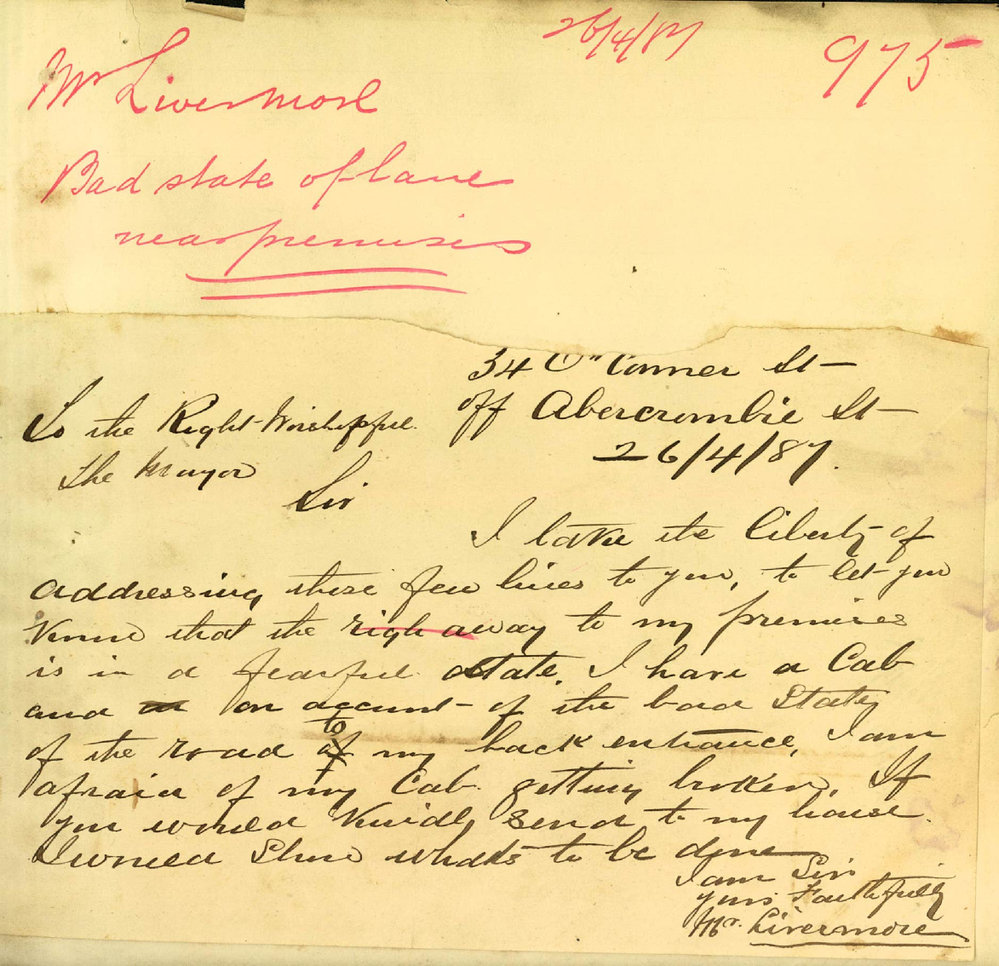 26/4/87
975
Mr Livermore
Bad state of lane
near premises
34 O"Conner St
off Abercrombie St
26/4/87.
To the Right Worshipful
The Mayor
Sir
I take the liberty of
addressing these few lines to you, to let you
know that the righ away to my premises
is in a fearful state. I have a Cab
and on account of the bad State
of the road to my back entrance, I am
afraid of my Cab getting broken. If
you would kindly send to my house.
I would Show what's to be done
I am Sir
yours Faithfully
Mr. Livermore